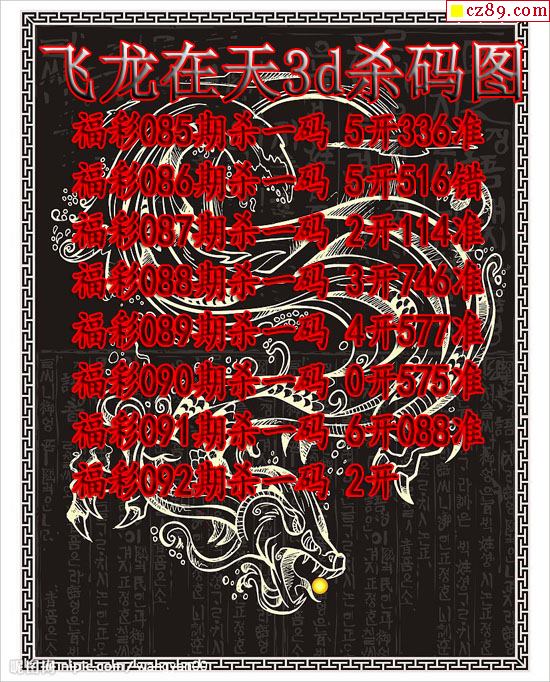 cz89.com
飞龙在天3d杀码图
福彩085期杀一码 5开336准
福彩086期杀一码 5开516错
福彩087期杀一码 2开114准
福彩088期杀一码 3开746准
福彩089期杀一码 4开577准
福彩090期杀一码 0开575准
福彩091期杀一码 6开088准
福彩092期杀一码 2开